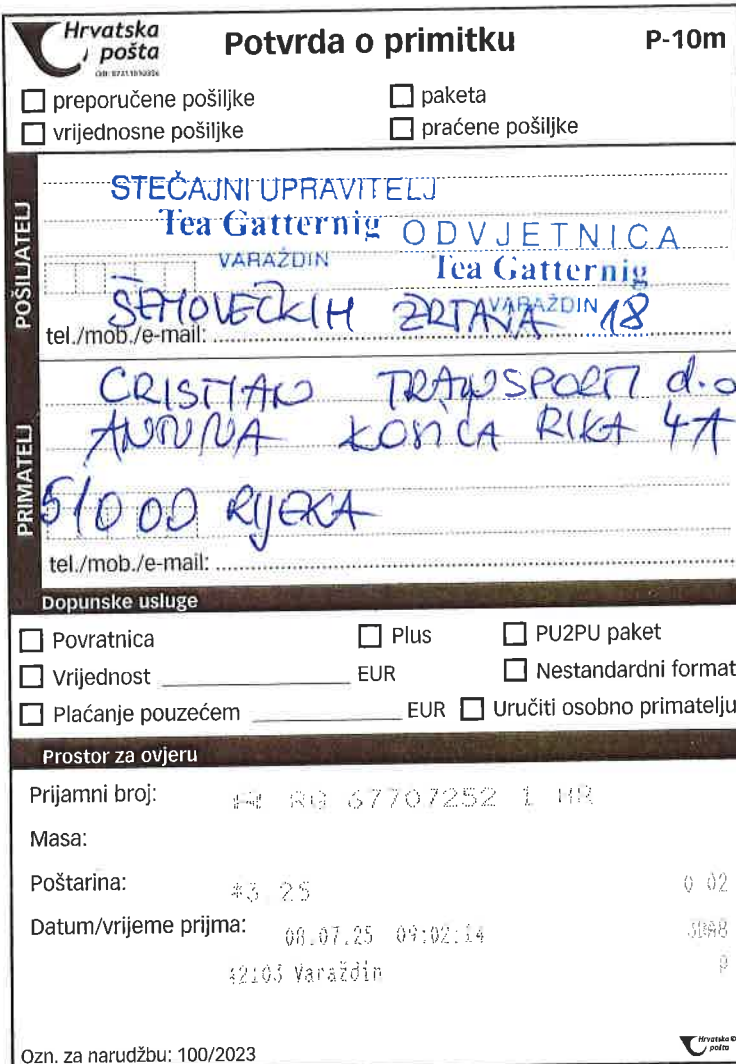 Hrvatska pošta
Potvrda o primitku
P-10m
preporučene pošiljke
paketa
vrijednosne pošiljke
praćene pošiljke
POŠILJATELJ
STEČAJNI UPRAVITELJ
Tea Gatternig
VARAŽDIN
ODVJETNICA
Tea Gatternig
VARAŽDIN
ŠEMOVEČKIH ŽRTAVA 18
tel./mob./e-mail:
PRIMATELJ
CRISTIAN TRANSPORTI d.o
ANTUNA KOSIĆA RIKA 4A
51000 RIJEKA
tel./mob./e-mail:
Dopunske usluge
Povratnica
Plus
PU2PU paket
Vrijednost EUR
Nestandardni format
Plaćanje pouzećem EUR
Uručiti osobno primatelju
Prostor za ovjeru
Prijamni broj: RG 67707252 1 HR
Masa:
Poštarina: *3.25 0.02
Datum/vrijeme prijma: 08.07.25 09:02:14
42103 Varaždin
Ozn. za narudžbu: 100/2023
Hrvatska pošta